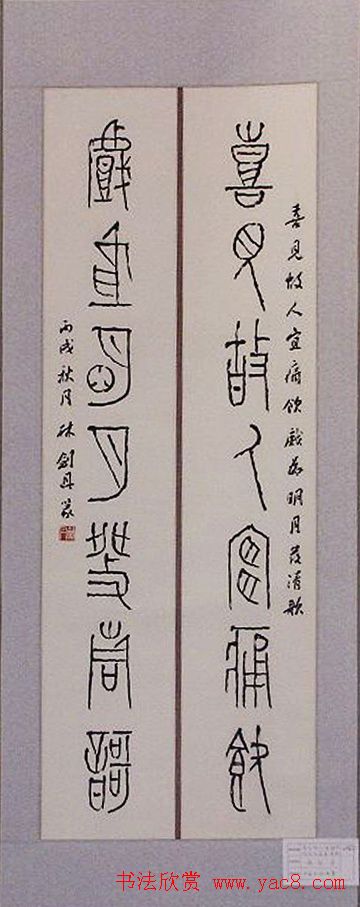 喜見故人宜痛飲
喜見故人宜痛飲戲為明月發清歌
戲為明月發清歌
丙戌秋月林劍丹篆
书法欣赏 www.yac8.com